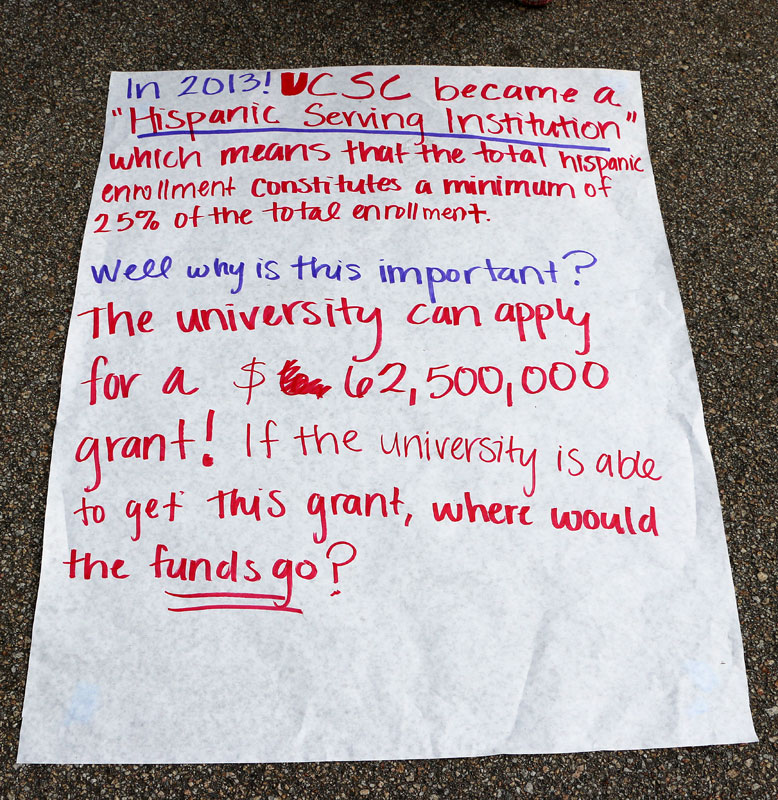 In 2013! UCSC became a
"Hispanic Serving Institution"
which means that the total hispanic
enrollment constitutes a minimum of
25% of the total enrollment.
Well why is this important?
The university can apply
for a $ 62,500,000
grant! If the university is able
to get this grant, where would
the funds go?